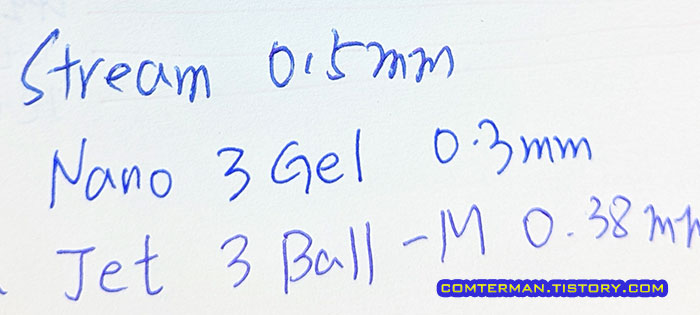 Stream 0.5mm
Nano 3 Gel 0.3mm
Jet 3 Ball-M 0.38mm
COMTERMAN.TISTORY.COM